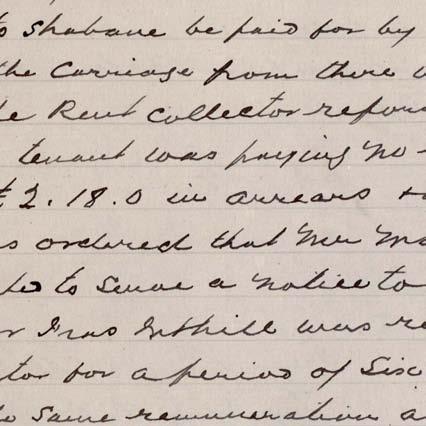 to Shabane be paid for by
the Carriage from there
Rent Collector
tenant was paying no
£2.18.0 in arrears
ordered that Mr
to Serve a Notice to
was
for a period of Six
Same remuneration